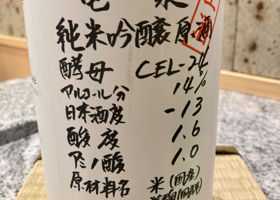 亀泉
純米吟醸原酒
酵母 CEL-24
アルコール分 14%
日本酒度 -13
酸度 1.6
アミノ酸 1.0
原材料名 米(国産)